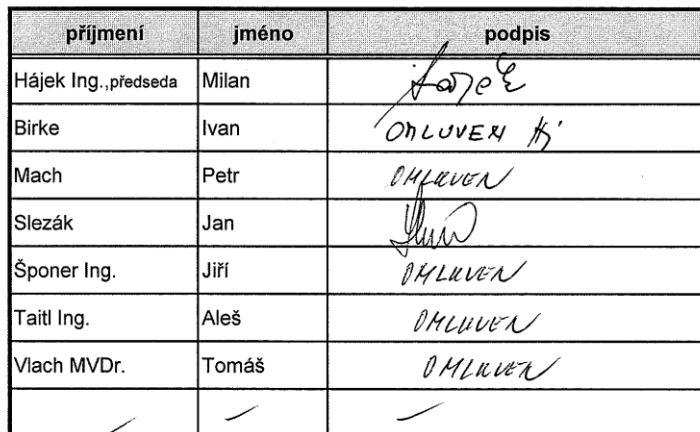 příjmení jméno podpis
Hájek Ing.,předseda Milan Hájek
Birke Ivan OMLUVEN Hj
Mach Petr OMLUVEN
Slezák Jan
Šponer Ing. Jiří OMLUVEN
Taitl Ing. Aleš OMLUVEN
Vlach MVDr. Tomáš OMLUVEN